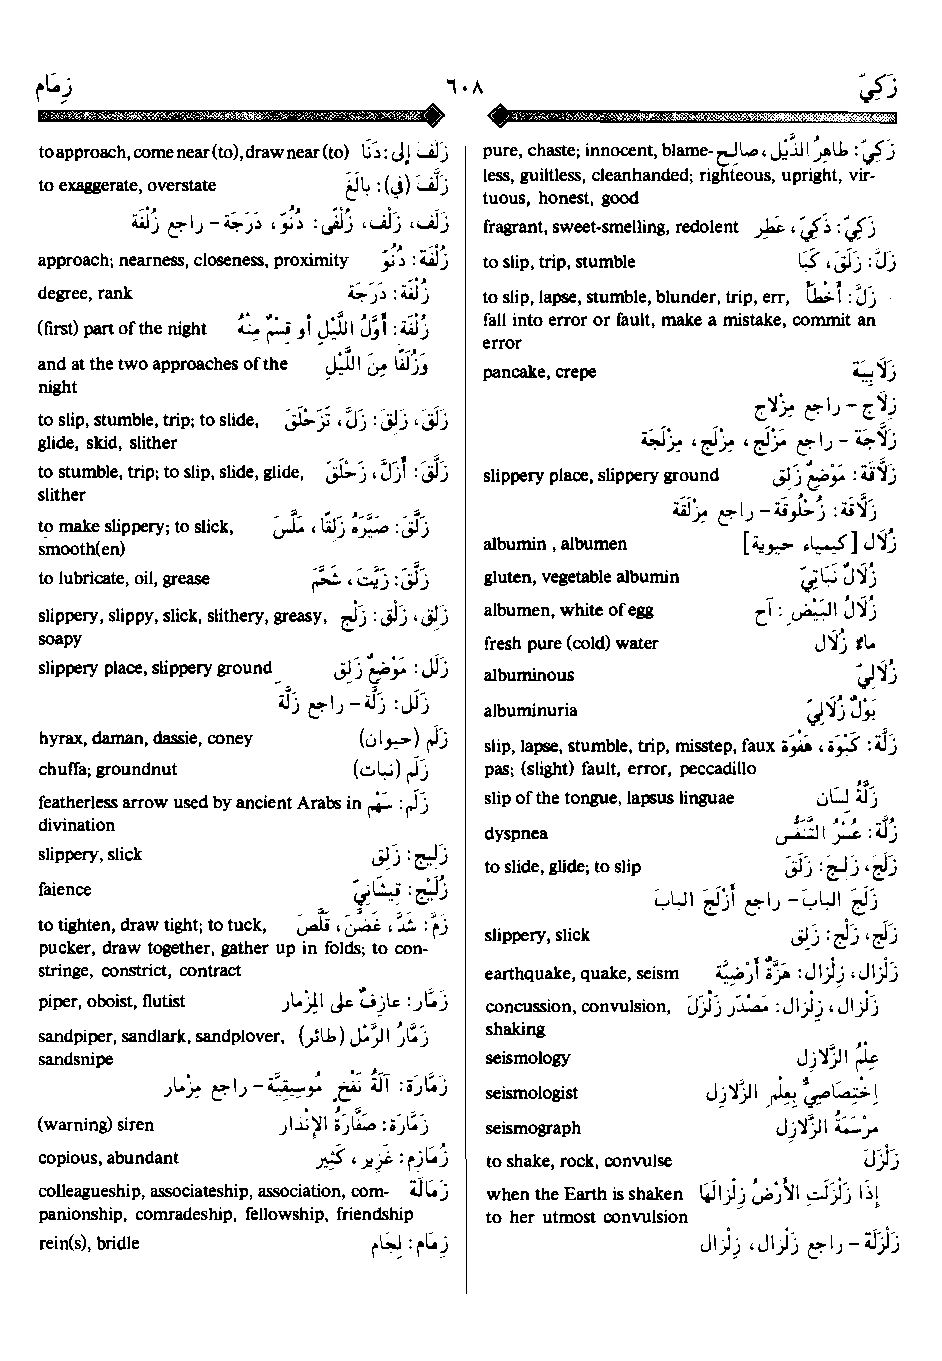 زَكِيّ ٦٠٨ زِمَام
زَكِيّ: طاهِرُ الذَّيْل، صالِح pure, chaste; innocent, blame-
less, guiltless, cleanhanded; righteous, upright, vir-
tuous, honest, good
زَكِيّ: ذَكِيّ، عَطِر fragrant, sweet-smelling, redolent
زَلَّ: زَلَقَ، كَبَا to slip, trip, stumble
زَلَّ: أَخْطَأَ to slip, lapse, stumble, blunder, trip, err,
fall into error or fault, make a mistake, commit an
error
زَلَابِيَة pancake, crepe
زِلَاج - راجع مِزْلاج
زَلَّاجَة - راجع مَزْلَج، مِزْلَج، مِزْلَجَة
زَلَّاقَة: مَوْضِعٌ زَلِق slippery place, slippery ground
زَلَّاقَة: زُحْلُوقَة - راجع مِزْلَقَة
زُلَال [كيمياء حيوية] albumin , albumen
زُلَالٌ نَبَاتِيّ gluten, vegetable albumin
زُلَالُ البَيْض: آح albumen, white of egg
ماء زُلَال fresh pure (cold) water
زُلَالِيّ albuminous
بَوْلٌ زُلَالِيّ albuminuria
زَلَّة: كَبْوَة، هَفْوَة slip, lapse, stumble, trip, misstep, faux
pas; (slight) fault, error, peccadillo
زَلَّةُ لِسَان slip of the tongue, lapsus linguae
زُلَّة: عُسْرُ التَّنَفُّس dyspnea
زَلَجَ، زَلِجَ: زَلَقَ to slide, glide; to slip
زَلَجَ البابَ - راجع أَزْلَجَ البابَ
زَلَج، زَلْج: زَلِق slippery, slick
زَلْزَال، زِلْزَال: هَزَّةٌ أَرْضِيَّة earthquake, quake, seism
زَلْزَال، زِلْزَال: مَصْدَر زَلْزَلَ concussion, convulsion,
shaking
عِلْمُ الزَّلازِل seismology
إِخْتِصَاصِيٌّ بِعِلْمِ الزَّلازِل seismologist
مِرْسَمَةُ الزَّلازِل seismograph
زَلْزَلَ to shake, rock, convulse
إِذَا زُلْزِلَتِ الأَرْضُ زِلْزَالَهَا when the Earth is shaken
to her utmost convulsion
زَلْزَلَة - راجع زَلْزَال، زِلْزَال
زَلَفَ إلى: دَنَا to approach, come near (to), draw near (to)
زَلَّفَ (في): بالَغَ to exaggerate, overstate
زَلَف، زَلْف، زُلْفَى: دُنُوّ، دَرَجَة - راجع زُلْفَة
زُلْفَة: دُنُوّ approach; nearness, closeness, proximity
زُلْفَة: دَرَجَة degree, rank
زُلْفَة: أَوَّلُ اللَّيْلِ أو قِسْمٌ مِنْهُ (first) part of the night
وَزُلَفًا مِنَ اللَّيْلِ and at the two approaches of the
night
زَلَقَ، زَلِقَ: زَلَّ، تَزَحْلَقَ to slip, stumble, trip; to slide,
glide, skid, slither
زَلَّقَ: أَزَلَّ، زَحْلَقَ to stumble, trip; to slip, slide, glide,
slither
زَلَّقَ: صَيَّرَهُ زَلِقًا، مَلَّسَ to make slippery; to slick,
smooth(en)
زَلَّقَ: زَيَّتَ، شَحَّمَ to lubricate, oil, grease
زَلِق، زَلْق: زَلْج slippery, slippy, slick, slithery, greasy,
soapy
زَلَل: مَوْضِعٌ زَلِق slippery place, slippery ground
زَلَل: زَلَّة - راجع زَلَّة
زَلَم (حيوان) hyrax, daman, dassie, coney
زَلَم (نبات) chuffa; groundnut
زَلَم: سَهْم featherless arrow used by ancient Arabs in
divination
زَلِيج: زَلِق slippery, slick
زُلَّيْج: قِيشَانِيّ faience
زَمَّ: شَدَّ، غَضَّنَ، قَلَّصَ to tighten, draw tight; to tuck,
pucker, draw together, gather up in folds; to con-
stringe, constrict, contract
زَمَّار: عازِفٌ على المِزْمار piper, oboist, flutist
زَمَّارُ الرَّمْل (طائر) sandpiper, sandlark, sandplover,
sandsnipe
زَمَّارَة: آلَةُ نَفْخٍ مُوسِيقِيَّة - راجع مِزْمار
زَمَّارَة: صَفَّارَةُ الإنْذار (warning) siren
زُمَازِم: غَزِير، كَثِير copious, abundant
زَمَالَة colleagueship, associateship, association, com-
panionship, comradeship, fellowship, friendship
زِمَام: لِجَام rein(s), bridle